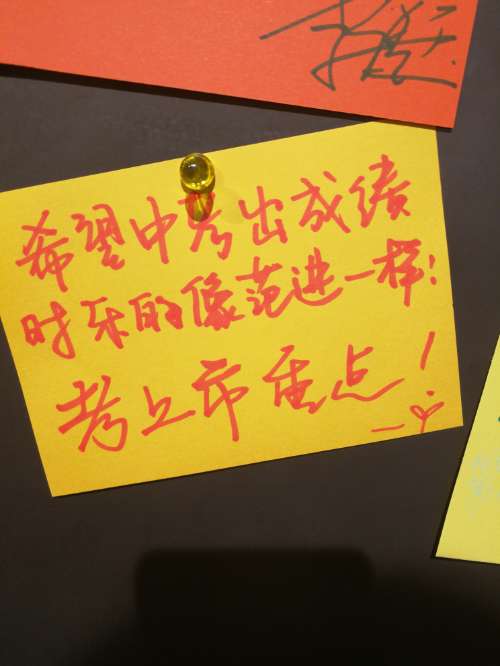 希望中考出成绩
时乐的像范进一样！
考上市重点！